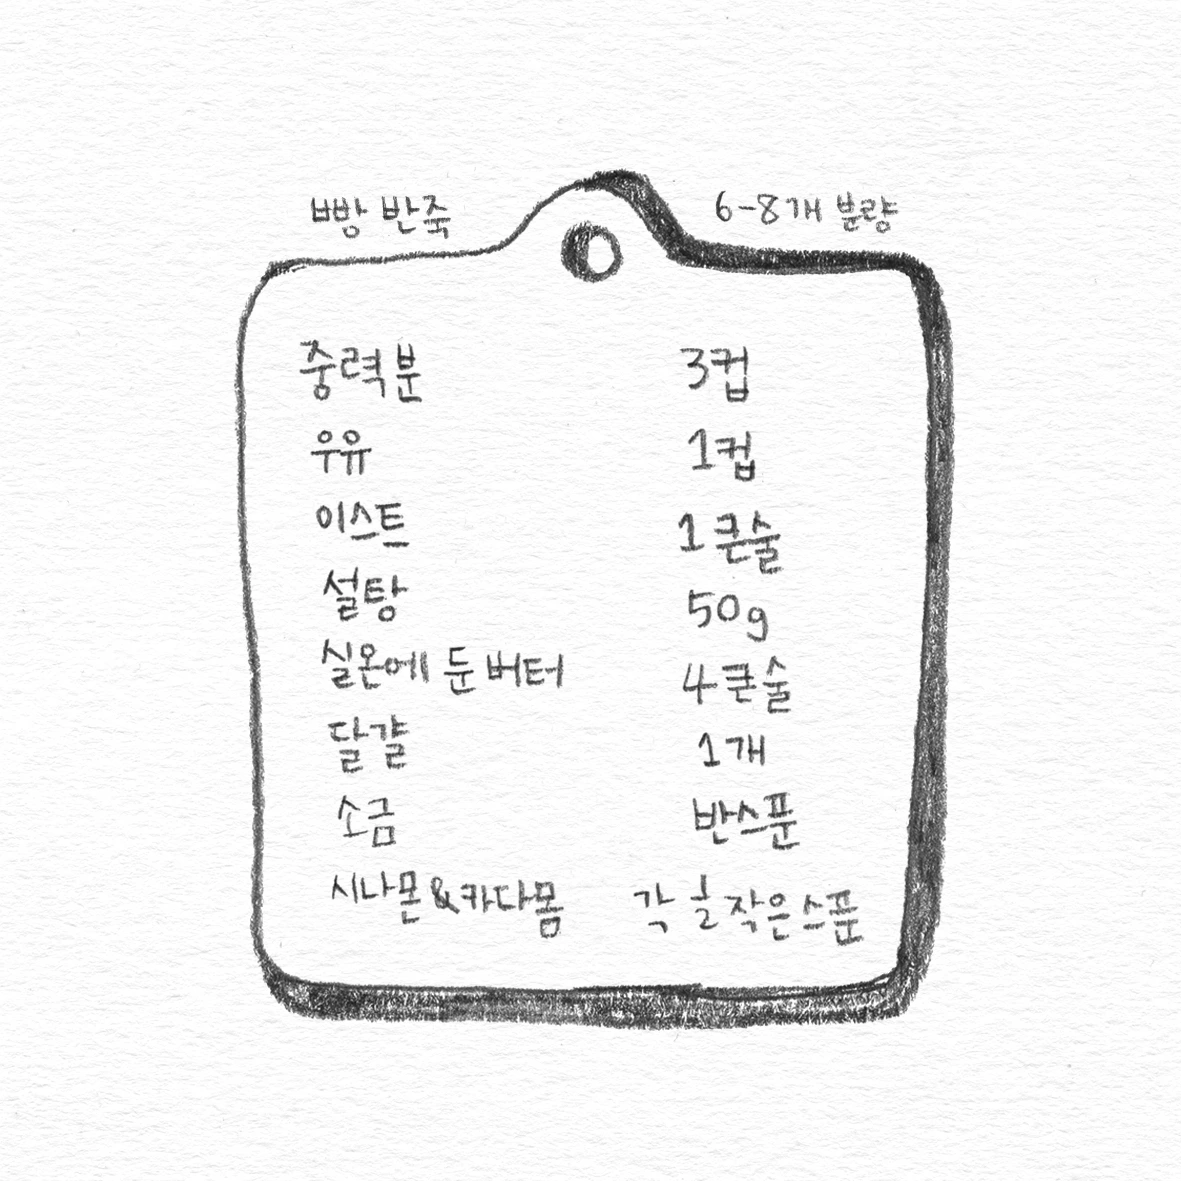 빵 반죽 6-8개 분량
중력분 3컵
우유 1컵
이스트 1큰술
설탕 50g
실온에 둔 버터 4큰술
달걀 1개
소금 반스푼
시나몬&카다몸 각 작은스푼